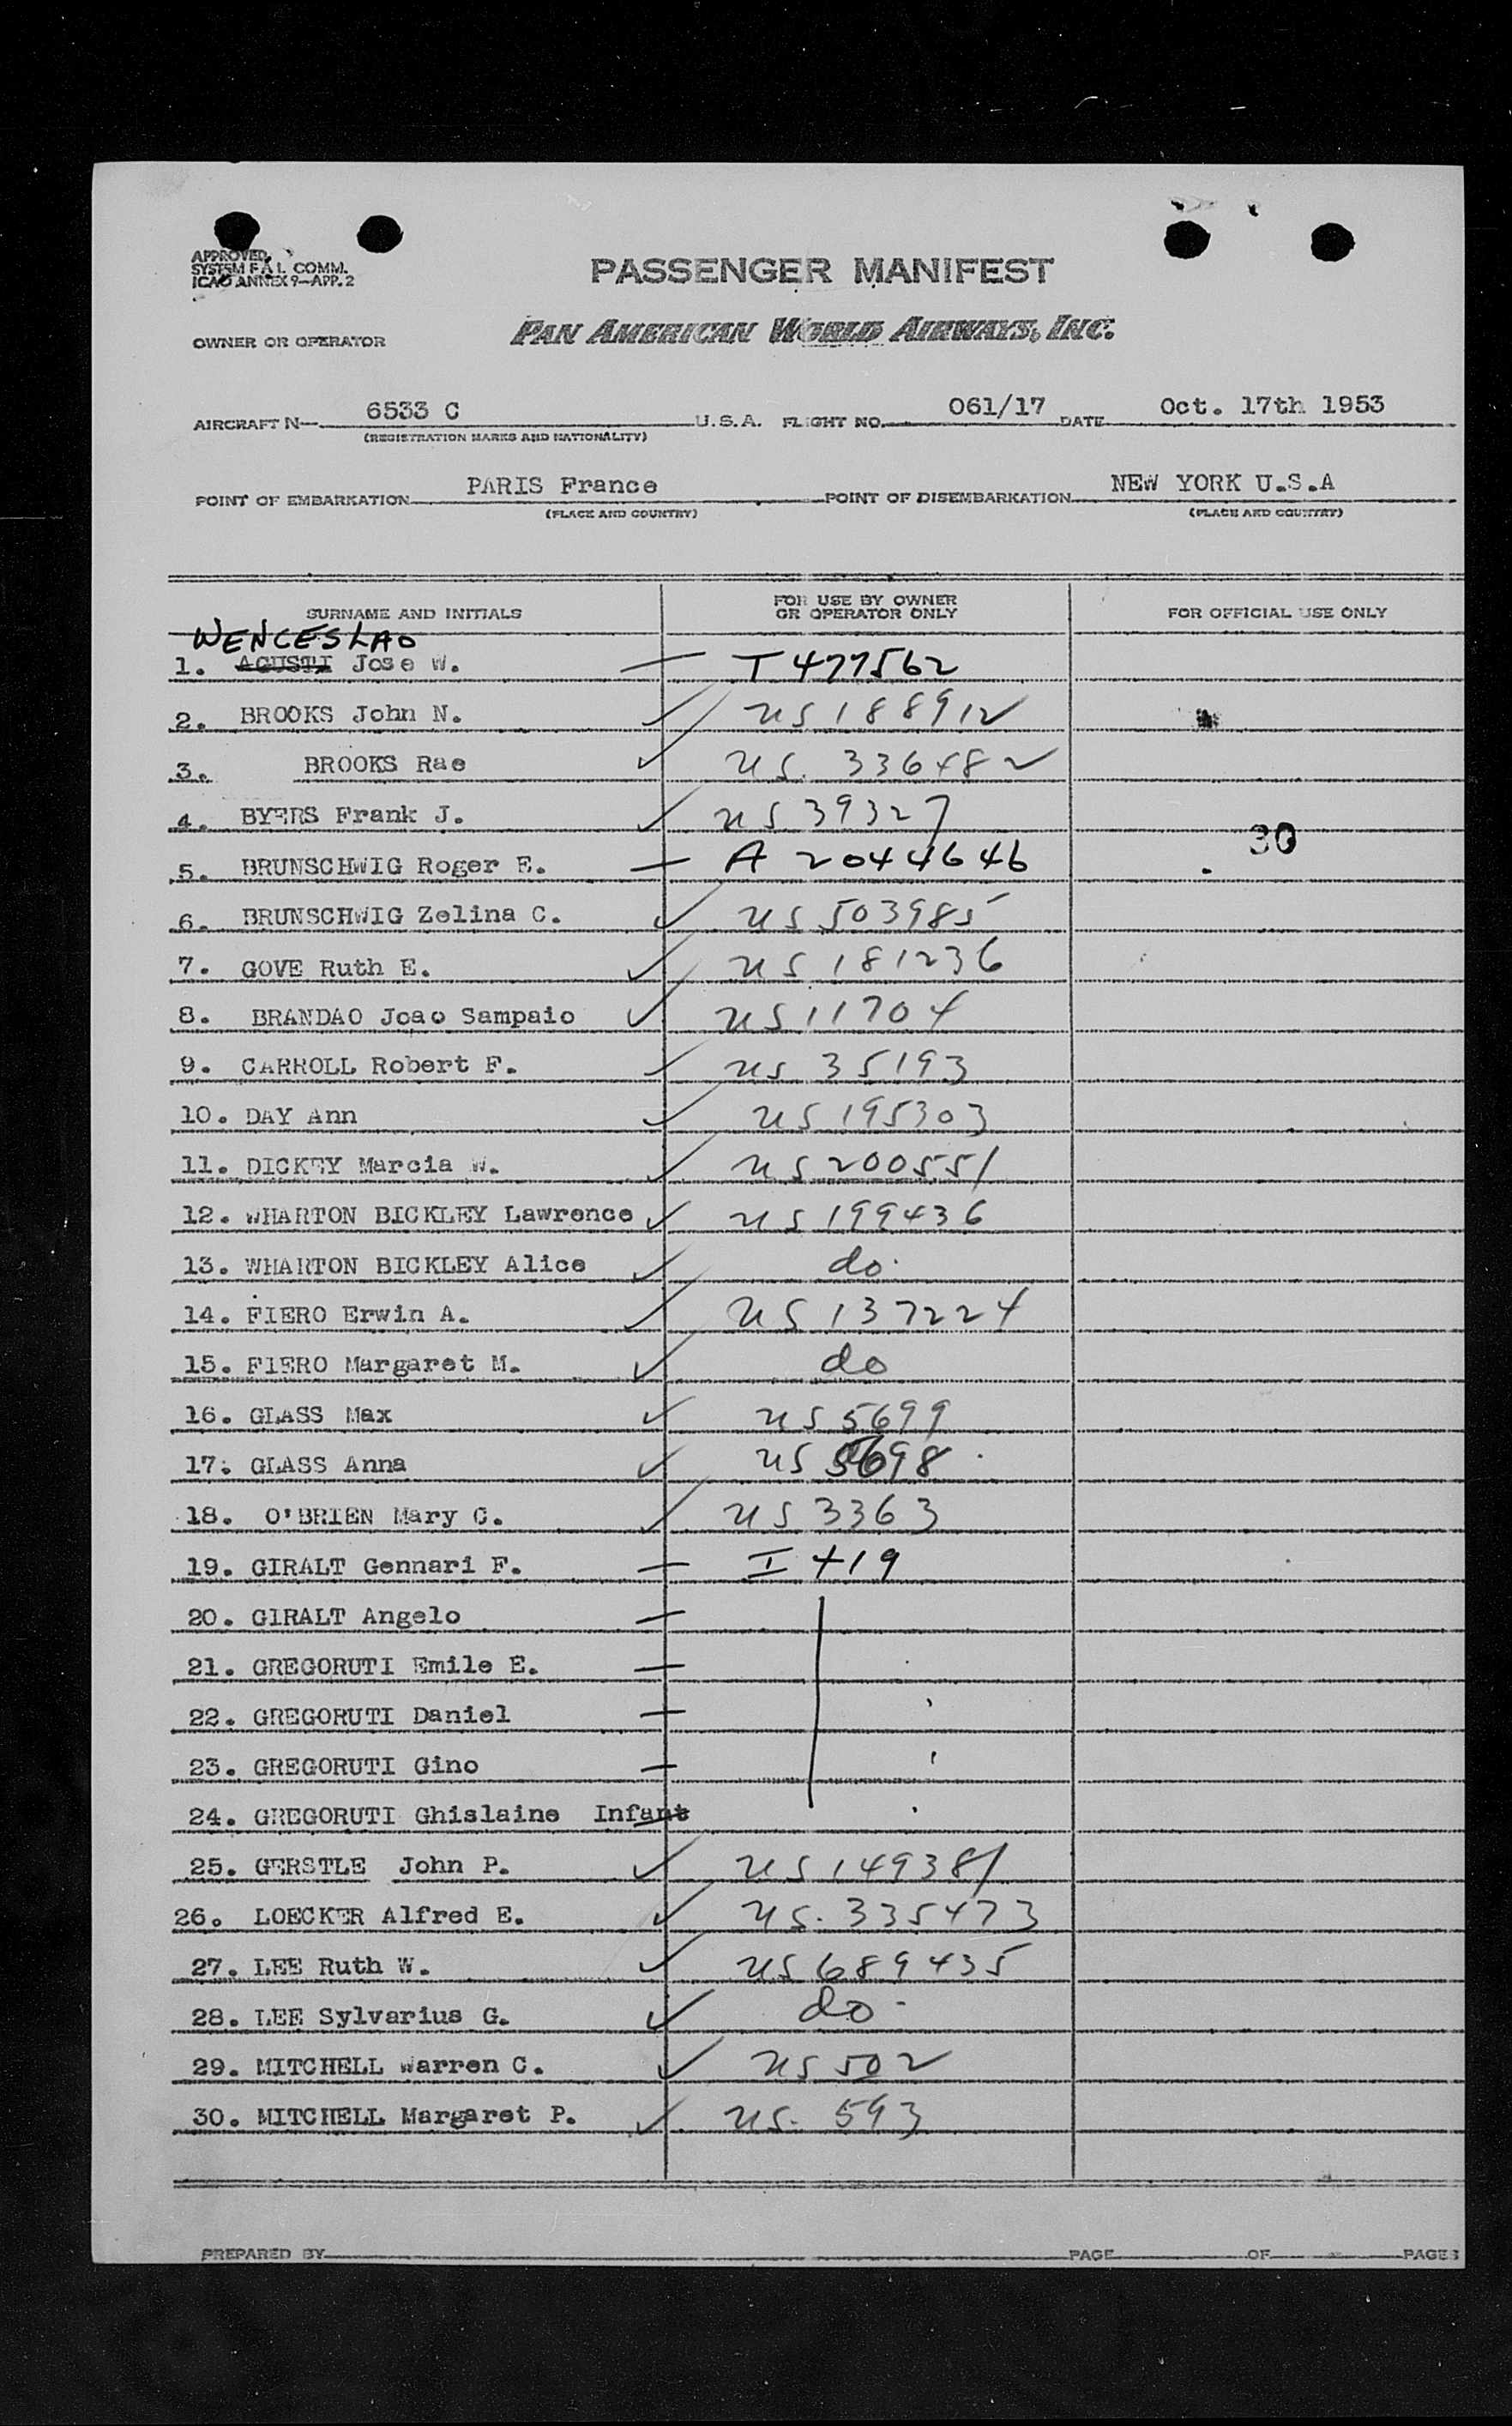 APPROVED
SYSTEM F A L COMM.
ICAO ANNEX 9—APP. 2
PASSENGER MANIFEST
OWNER OR OPERATOR
PAN AMERICAN WORLD AIRWAYS, INC.
AIRCRAFT N— 6533 C U.S.A. FLIGHT NO. 061/17 DATE Oct. 17th 1953
(REGISTRATION MARKS AND NATIONALITY)
POINT OF EMBARKATION PARIS France POINT OF DISEMBARKATION NEW YORK U.S.A
(PLACE AND COUNTRY) (PLACE AND COUNTRY)
SURNAME AND INITIALS FOR USE BY OWNER OR OPERATOR ONLY FOR OFFICIAL USE ONLY
WENCESLAO
1. AGUSTI Jose W. — T 477562
2. BROOKS John N. ✓ US 188912
3. BROOKS Rae ✓ US. 336482
4. BYERS Frank J. ✓ US 39327
30
5. BRUNSCHWIG Roger E. — A 2044646
6. BRUNSCHWIG Zelina C. ✓ US 503985
7. GOVE Ruth E. ✓ US 181236
8. BRANDAO Joao Sampaio ✓ US 11704
9. CARROLL Robert F. ✓ US 35193
10. DAY Ann ✓ US 195303
11. DICKEY Marcia W. ✓ US 200551
12. WHARTON BICKLEY Lawrence ✓ US 199436
13. WHARTON BICKLEY Alice ✓ do.
14. FIERO Erwin A. ✓ US 137224
15. FIERO Margaret M. ✓ do
16. GLASS Max ✓ US 5699
17. GLASS Anna ✓ US 5698
18. O'BRIEN Mary C. ✓ US 3363
19. GIRALT Gennari F. — I 419
20. GIRALT Angelo —
21. GREGORUTI Emile E. —
22. GREGORUTI Daniel —
23. GREGORUTI Gino —
24. GREGORUTI Ghislaine Infant
25. GERSTLE John P. ✓ US 149381
26. LOECKER Alfred E. ✓ US. 335473
27. LEE Ruth W. ✓ US 689435
28. LEE Sylvarius G. ✓ do.
29. MITCHELL Warren C. ✓ US 502
30. MITCHELL Margaret P. ✓ US. 593
PREPARED BY PAGE OF PAGES